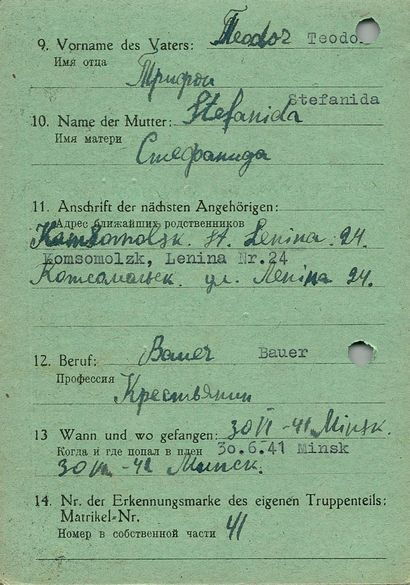 9. Vorname des Vaters: Teodor Teodor
Имя отца
Трифон
Stefanida
10. Name der Mutter: Stefanida
Имя матери
Стефанида
11. Anschrift der nächsten Angehörigen:
Адрес ближайших родственников
Komsomolzk. st. Lenina. 24.
Komsomolzk, Lenina Nr.24
Комсомольск. ул. Ленина 24.
12. Beruf: Bauer Bauer
Профессия
Крестьянин
13 Wann und wo gefangen: 30 VI -41 Minsk.
Когда и где попал в плен 30.6.41 Minsk
30 VI -41 Минск.
14. Nr. der Erkennungsmarke des eigenen Truppenteils:
Matrikel-Nr.
Номер в собственной части 41